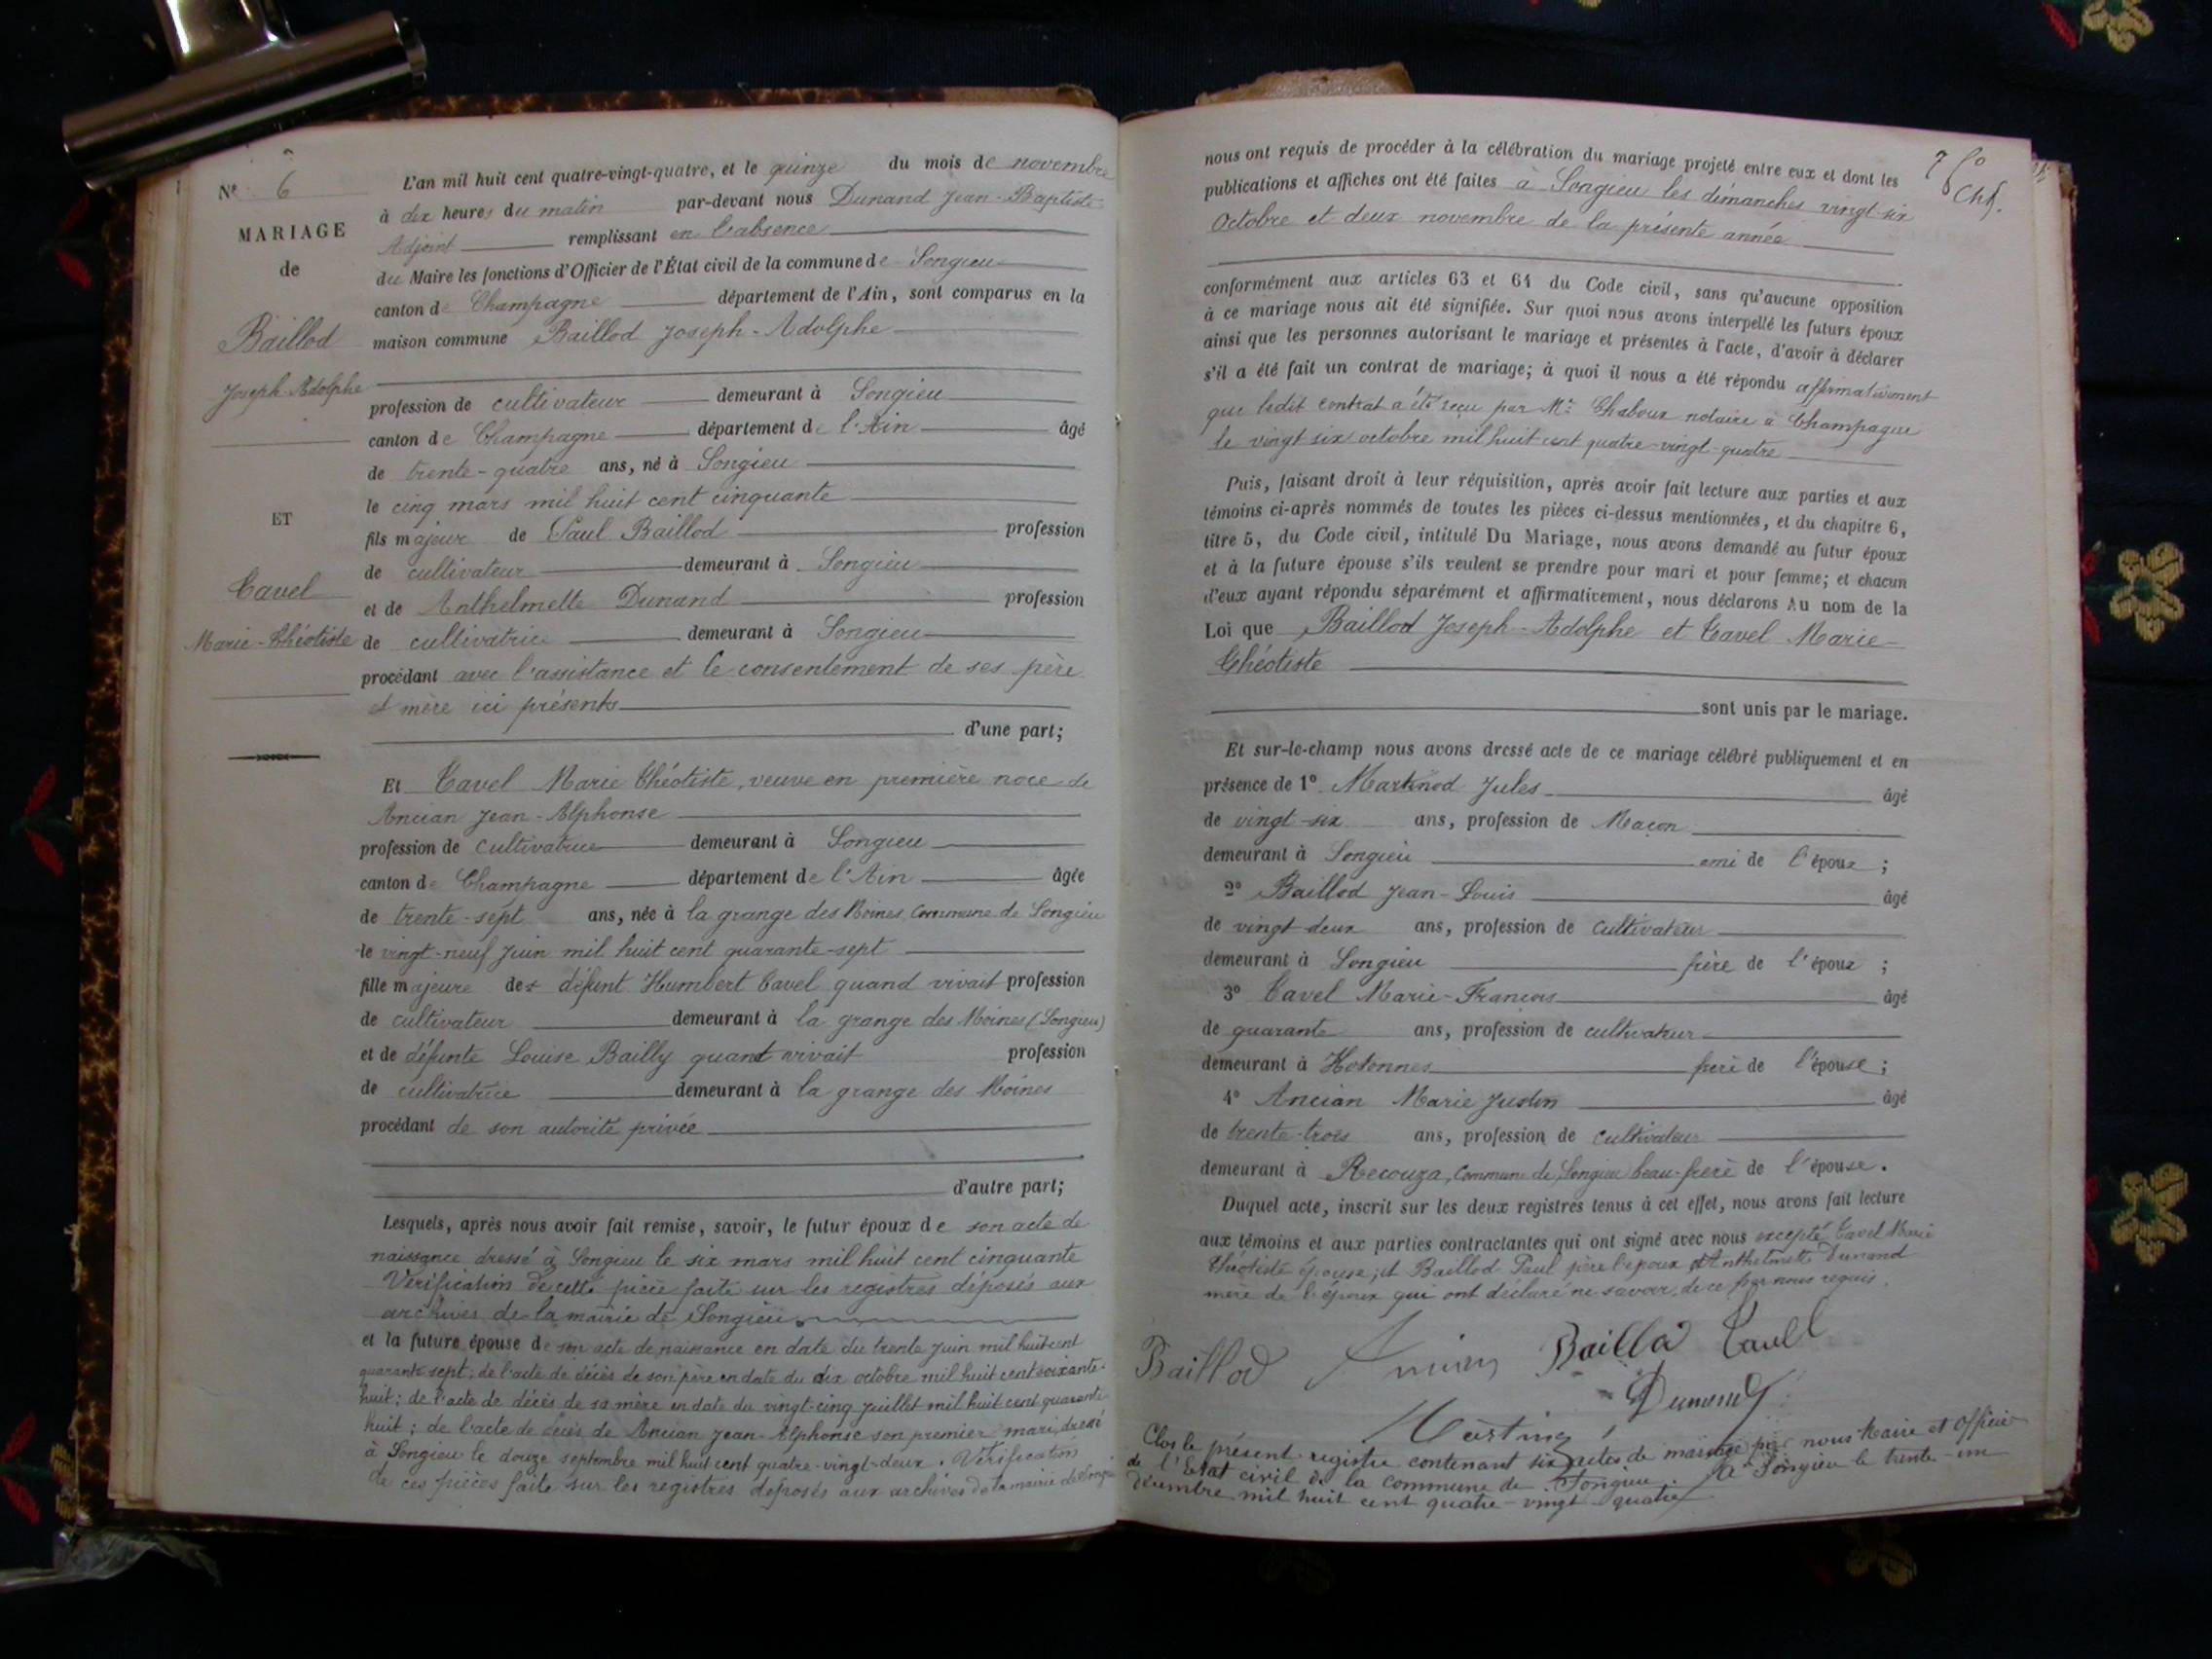 N° 6
MARIAGE
de
Baillod
Joseph-Adolphe
ET
Cavel
Marie-Théotiste
L'an mil huit cent quatre-vingt-quatre, et le quinze du mois de novembre
à dix heures du matin par-devant nous Dunand Jean-Baptiste
Adjoint remplissant en l'absence
du Maire les fonctions d'Officier de l'État civil de la commune de Songieu
canton de Champagne département de l'Ain, sont comparus en la
maison commune Baillod Joseph-Adolphe
profession de cultivateur demeurant à Songieu
canton de Champagne département de l'Ain âgé
de trente-quatre ans, né à Songieu
le cinq mars mil huit cent cinquante
fils majeur de Paul Baillod profession
de cultivateur demeurant à Songieu
et de Anthelmette Dunand profession
de cultivatrice demeurant à Songieu
procédant avec l'assistance et le consentement de ses père
et mère ici présents
d'une part;
Et Cavel Marie Théotiste, veuve en première noce de
Ancian Jean-Alphonse
profession de cultivatrice demeurant à Songieu
canton de Champagne département de l'Ain âgée
de trente-sept ans, née à la grange des Moines, Commune de Songieu
le vingt-neuf Juin mil huit cent quarante-sept
fille majeure de défunt Humbert Cavel quand vivait profession
de cultivateur demeurant à la grange des Moines (Songieu)
et de défunte Louise Bailly quand vivait profession
de cultivatrice demeurant à la grange des Moines
procédant de son autorité privée
d'autre part;
Lesquels, après nous avoir fait remise, savoir, le futur époux de son acte de
naissance dressé à Songieu le six mars mil huit cent cinquante
Vérification de cette pièce faite sur les registres déposés aux
archives de la mairie de Songieu.
et la future épouse de son acte de naissance en date du trente Juin mil huit cent
quarante sept; de l'acte de décès de son père en date du dix octobre mil huit cent soixante-
huit; de l'acte de décès de sa mère en date du vingt-cinq Juillet mil huit cent quarante-
huit; de l'acte de décès de Ancian Jean-Alphonse son premier mari, dressé
à Songieu le douze septembre mil huit cent quatre-vingt-deux. Vérification
de ces pièces faite sur les registres déposés aux archives de la mairie de Songieu
7 fo
Chf.
nous ont requis de procéder à la célébration du mariage projeté entre eux et dont les
publications et affiches ont été faites à Songieu les dimanches vingt-six
Octobre et deux novembre de la présente année
conformément aux articles 63 et 64 du Code civil, sans qu'aucune opposition
à ce mariage nous ait été signifiée. Sur quoi nous avons interpellé les futurs époux
ainsi que les personnes autorisant le mariage et présentes à l'acte, d'avoir à déclarer
s'il a été fait un contrat de mariage; à quoi il nous a été répondu affirmativement
que ledit contrat a été reçu par Me Chaboux notaire à Champagne
le vingt six octobre mil huit cent quatre-vingt-quatre
Puis, faisant droit à leur réquisition, après avoir fait lecture aux parties et aux
témoins ci-après nommés de toutes les pièces ci-dessus mentionnées, et du chapitre 6,
titre 5, du Code civil, intitulé Du Mariage, nous avons demandé au futur époux
et à la future épouse s'ils veulent se prendre pour mari et pour femme; et chacun
d'eux ayant répondu séparément et affirmativement, nous déclarons Au nom de la
Loi que Baillod Joseph-Adolphe et Cavel Marie-
Théotiste
sont unis par le mariage.
Et sur-le-champ nous avons dressé acte de ce mariage célébré publiquement et en
présence de 1° Martinod Jules âgé
de vingt-six ans, profession de Maçon
demeurant à Songieu ami de l'époux;
2° Baillod Jean-Louis âgé
de vingt deux ans, profession de cultivateur
demeurant à Songieu frère de l'époux;
3° Cavel Marie-François âgé
de quarante ans, profession de cultivateur
demeurant à Hotonnes frère de l'épouse;
4° Ancian Marie Justin âgé
de trente-trois ans, profession de cultivateur
demeurant à Recouza, Commune de Songieu beau-frère de l'épouse.
Duquel acte, inscrit sur les deux registres tenus à cet effet, nous avons fait lecture
aux témoins et aux parties contractantes qui ont signé avec nous excepté Cavel Marie
Théotiste épouse; et Baillod Paul père l'époux et Anthelmette Dunand
mère de l'époux qui ont déclaré ne savoir, de ce par nous requis.
Baillod Ancian Baillod Cavel
Dunand
Martinod
Clos le présent registre contenant six actes de mariage par nous Maire et Officier
de l'Etat civil de la commune de Songieu. A Songieu le trente-un
décembre mil huit cent quatre-vingt-quatre